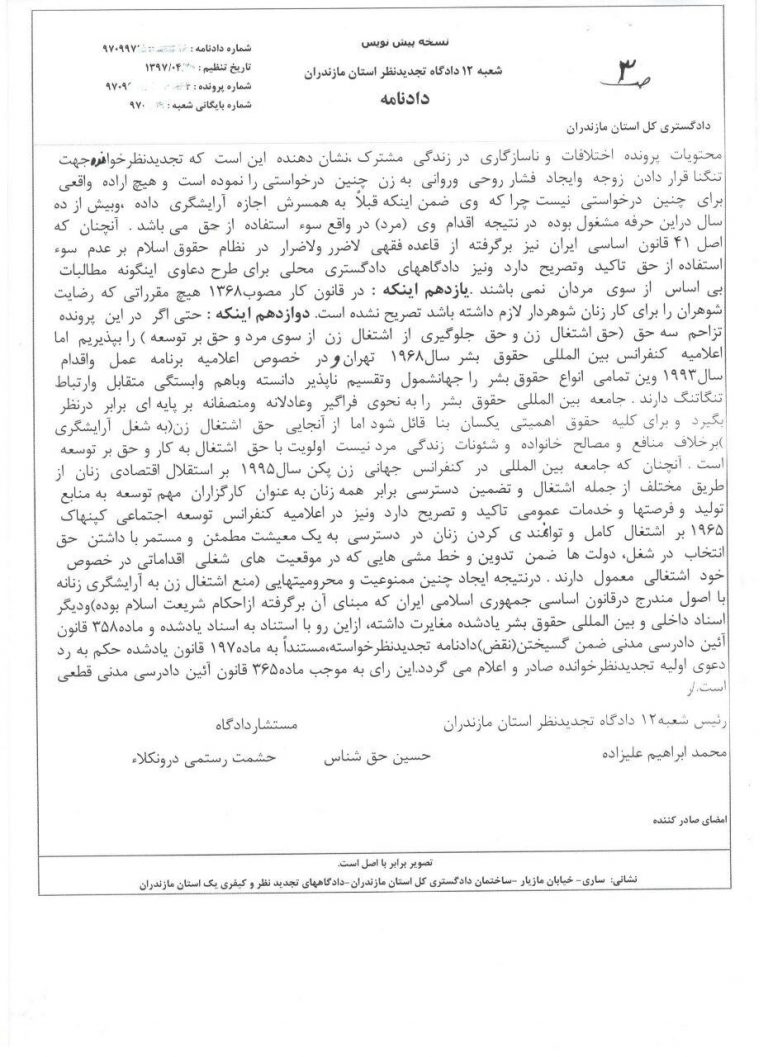 نسخه پیش نویس
شعبه ۱۲ دادگاه تجدیدنظر استان مازندران
دادنامه
شماره دادنامه : ۹۷۰۹۹۷
تاریخ تنظیم : ۱۳۹۷/۰۴/
شماره پرونده : ۹۷۰۹
شماره بایگانی شعبه : ۹۷۰
ص ۳
دادگستری کل استان مازندران
محتویات پرونده اختلافات و ناسازگاری در زندگی مشترک ،نشان دهنده این است که تجدیدنظرخوانده جهت
تنگنا قرار دادن زوجه وایجاد فشار روحی وروانی به زن چنین درخواستی را نموده است و هیچ اراده واقعی
برای چنین درخواستی نیست چرا که وی ضمن اینکه قبلاً به همسرش اجازه آرایشگری داده ،وبیش از ده
سال دراین حرفه مشغول بوده در نتیجه اقدام وی (مرد) در واقع سوء استفاده از حق می باشد . آنچنان که
اصل ۴۱ قانون اساسی ایران نیز برگرفته از قاعده فقهی لاضرر ولاضرار در نظام حقوق اسلام بر عدم سوء
استفاده از حق تاکید وتصریح دارد ونیز دادگاههای دادگستری محلی برای طرح دعاوی اینگونه مطالبات
بی اساس از سوی مردان نمی باشند .یازدهم اینکه : در قانون کار مصوب۱۳۶۸ هیچ مقرراتی که رضایت
شوهران را برای کار زنان شوهردار لازم داشته باشد تصریح نشده است. دوازدهم اینکه : حتی اگر در این پرونده
تزاحم سه حق (حق اشتغال زن و حق جلوگیری از اشتغال زن از سوی مرد و حق بر توسعه ) را بپذیریم اما
اعلامیه کنفرانس بین المللی حقوق بشر سال۱۹۶۸ تهران و در خصوص اعلامیه برنامه عمل واقدام
سال۱۹۹۳ وین تمامی انواع حقوق بشر را جهانشمول وتقسیم ناپذیر دانسته وباهم وابستگی متقابل وارتباط
تنگاتنگ دارند . جامعه بین المللی حقوق بشر را به نحوی فراگیر وعادلانه ومنصفانه بر پایه ای برابر درنظر
بگیرد و برای کلیه حقوق اهمیتی یکسان بنا قائل شود اما از آنجایی حق اشتغال زن(به شغل آرایشگری
)برخلاف منافع و مصالح خانواده و شئونات زندگی مرد نیست اولویت با حق اشتغال به کار و حق بر توسعه
است . آنچنان که جامعه بین المللی در کنفرانس جهانی زن پکن سال۱۹۹۵ بر استقلال اقتصادی زنان از
طریق مختلف از جمله اشتغال و تضمین دسترسی برابر همه زنان به عنوان کارگزاران مهم توسعه به منابع
تولید و فرصتها و خدمات عمومی تاکید و تصریح دارد ونیز در اعلامیه کنفرانس توسعه اجتماعی کپنهاک
۱۹۶۵ بر اشتغال کامل و توانمند ی کردن زنان در دسترسی به یک معیشت مطمئن و مستمر با داشتن حق
انتخاب در شغل، دولت ها ضمن تدوین و خط مشی هایی که در موقعیت های شغلی اقداماتی در خصوص
خود اشتغالی معمول دارند . درنتیجه ایجاد چنین ممنوعیت و محرومیتهایی (منع اشتغال زن به آرایشگری زنانه
با اصول مندرج درقانون اساسی جمهوری اسلامی ایران که مبنای آن برگرفته ازاحکام شریعت اسلام بوده)ودیگر
اسناد داخلی و بین المللی حقوق بشر یادشده مغایرت داشته، ازاین رو با استناد به اسناد یادشده و ماده۳۵۸ قانون
آئین دادرسی مدنی ضمن گسیختن(نقض)دادنامه تجدیدنظرخواسته،مستنداً به ماده۱۹۷ قانون یادشده حکم به رد
دعوی اولیه تجدیدنظرخوانده صادر و اعلام می گردد.این رای به موجب ماده۳۶۵ قانون آئین دادرسی مدنی قطعی
است./ر
رئیس شعبه۱۲ دادگاه تجدیدنظر استان مازندران مستشاردادگاه
محمد ابراهیم علیزاده حسین حق شناس حشمت رستمی درونکلاء
امضای صادر کننده
تصویر برابر با اصل است.
نشانی: ساری- خیابان مازیار -ساختمان دادگستری کل استان مازندران-دادگاههای تجدید نظر و کیفری یک استان مازندران